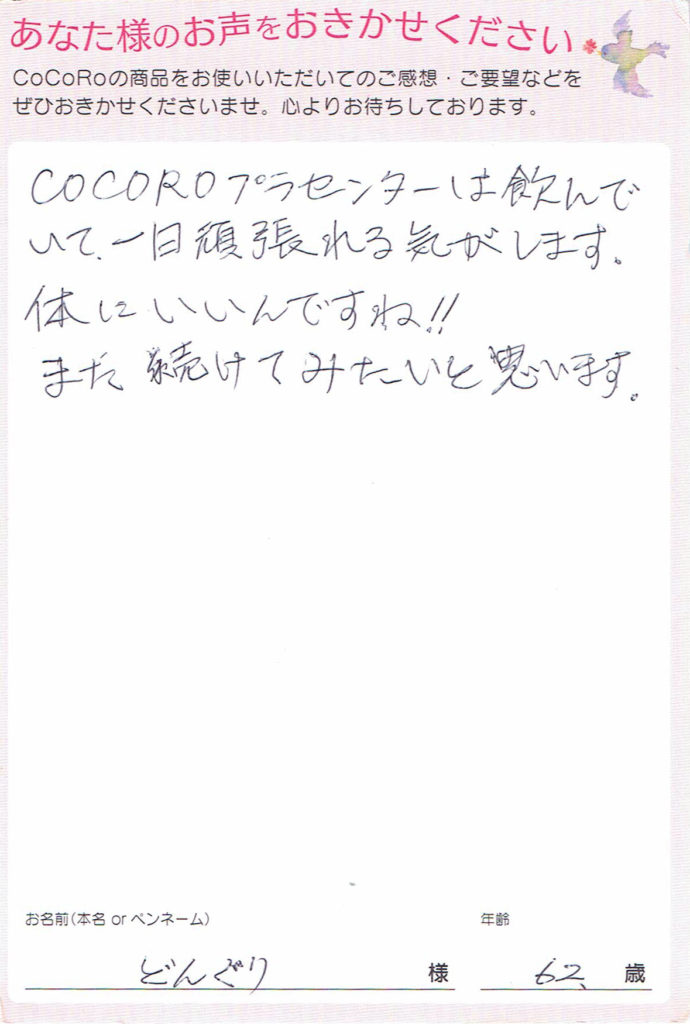 あなた様のお声をおきかせください
CoCoRoの商品をお使いいただいてのご感想・ご要望などを
ぜひおきかせくださいませ。心よりお待ちしております。
COCOROプラセンターは飲んで
いて、一日頑張れる気がします。
体にいいんですね!!
まだ続けてみたいと思います。
お名前(本名 or ペンネーム)
年齢
どんぐり 様
62 歳